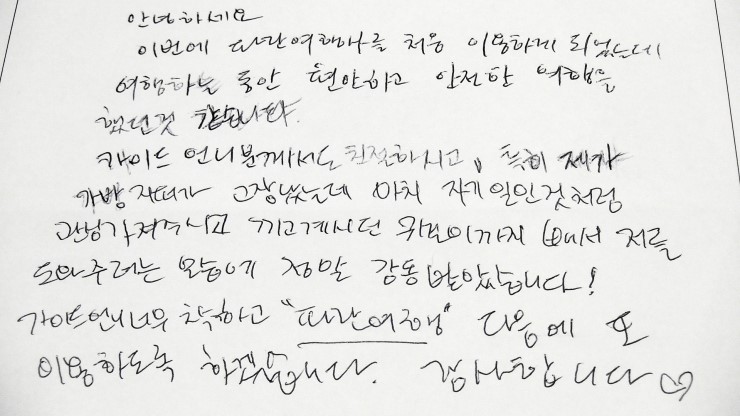 안녕하세요
이번에 따란여행사를 처음 이용하게 되었는데
여행하는 동안 편안하고 안전한 여행을
했던것 같습니다.
가이드 언니분께서도 친절하시고, 특히 제가
가방 자꾸가 고장났는데 마치 자기 일인것처럼
관심가져주시고 끼고계시던 귀걸이까지 빼서 저를
도와주려는 모습에 정말 감동 받았습니다!
가이드언니너무 착하고 "따란여행" 다음에 또
이용하도록 하겠습니다. 감사합니다♡